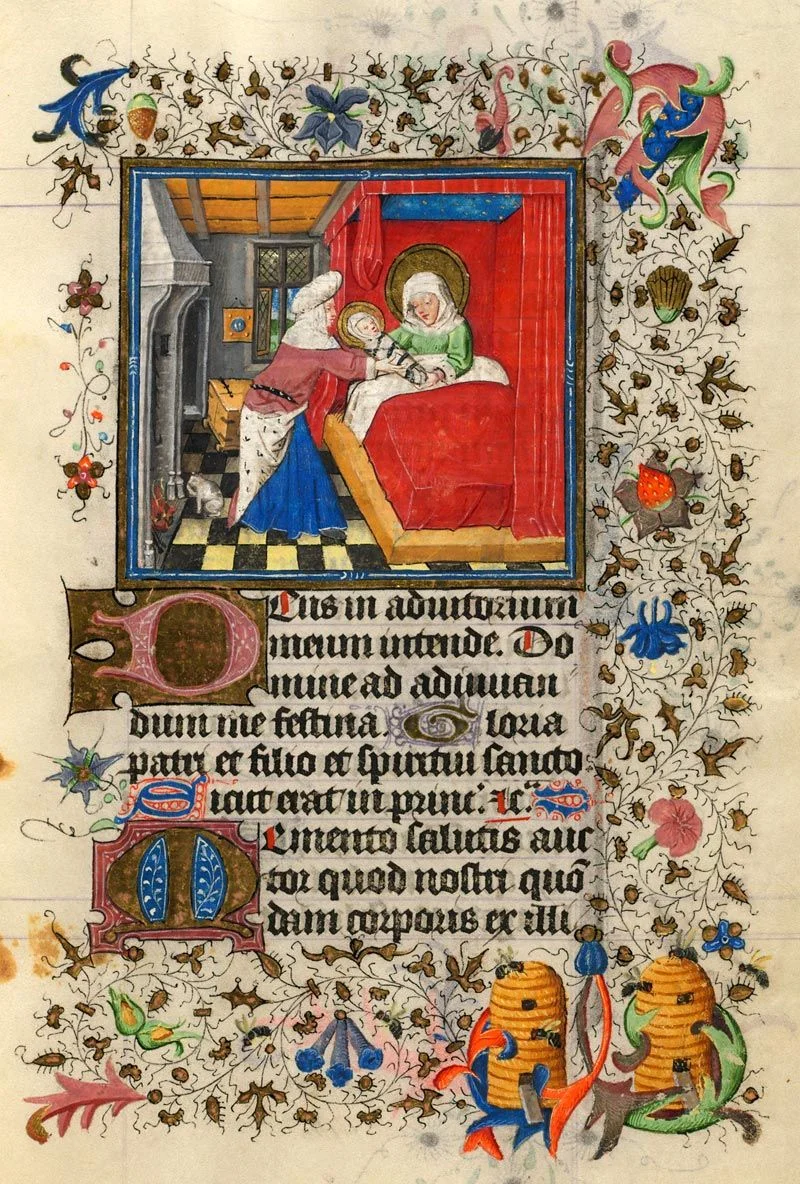 Deus in adiutorium
meum intende. Do
mine ad adiuuan
dum me festina. Gloria
patri et filio et spiritui sancto
Sicut erat in princ. ac.
Memento salutis auc
tor quod nostri quō
dam corporis ex illi